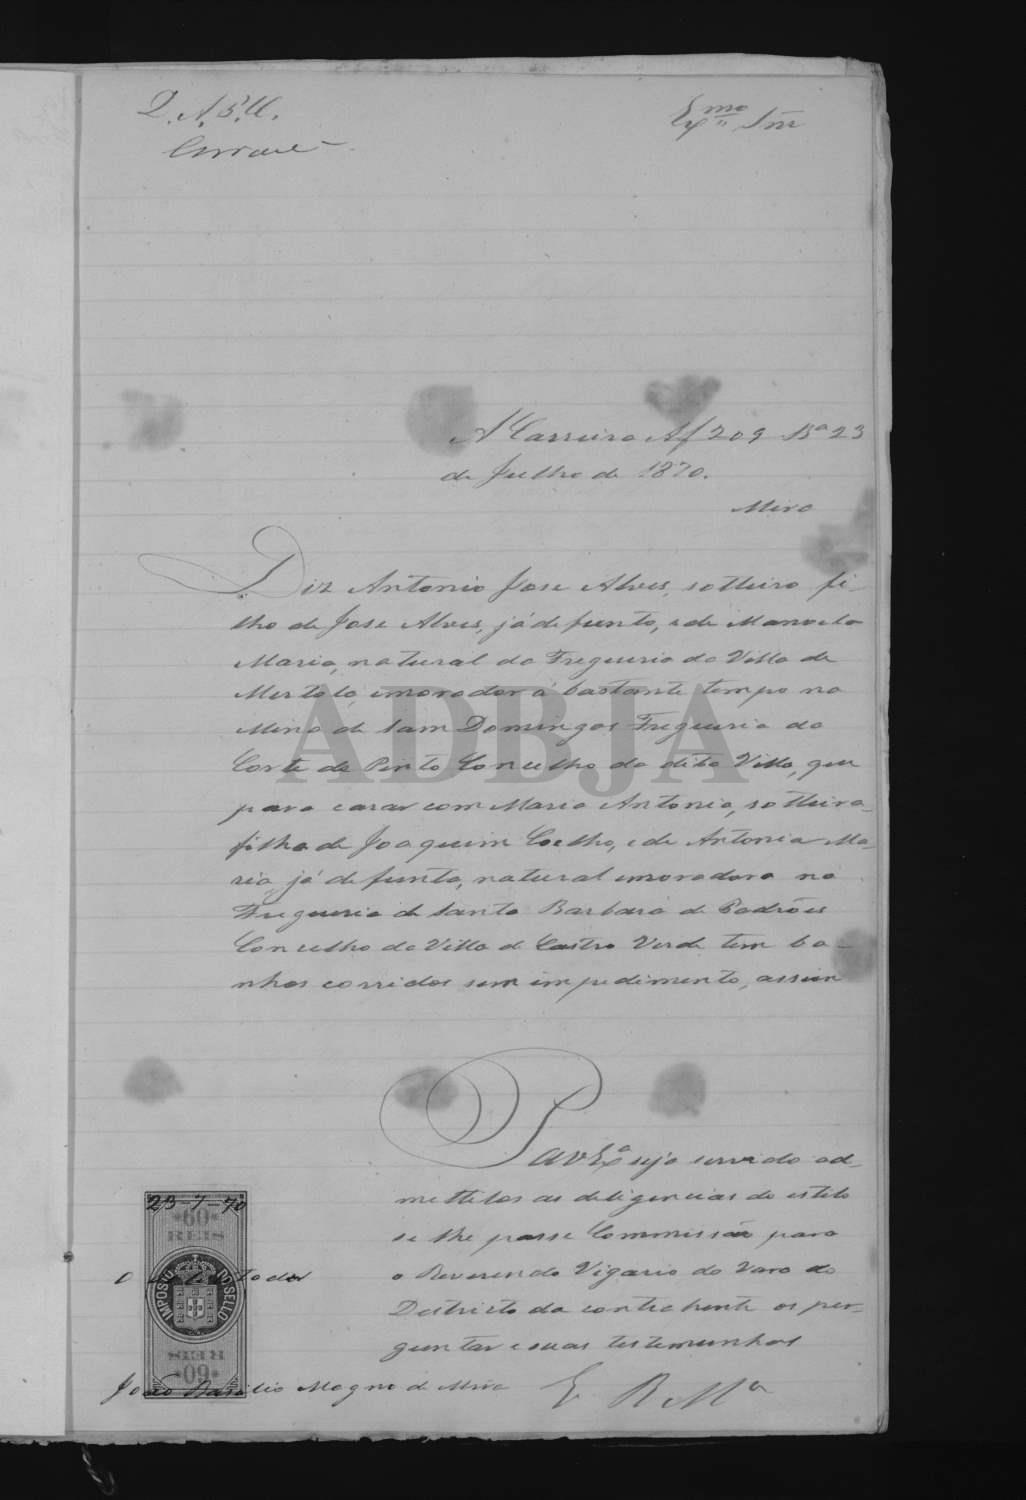 Exmo Snr
A Carreira Af 209 Ba 23
de Julho de 1870.
Mira
Diz Antonio Jose Alves, solteiro fi-
lho de Jose Alves, já defunto, e de Manoela
Maria, natural da Freguesia da Villa de
Mertola, e morador á bastante tempo na
Mina de Sam Domingos Freguesia da
Corte do Pinto Concelho da dita Villa, que
para casar com Maria Antonia, solteira-
filha de Joaquim Coelho, e de Antonia Ma-
ria já defunta, natural e moradora na
Freguesia de Santa Barbara de Padrões
Concelho da Villa de Castro Verde tem ba-
nhos corridos sem impedimento, assim
ADBJA
P a V Exa seja servido ad-
mettilos as deligencias do estilo
se lhe passe Commissão para
o Reverendo Vigario da Vara do
Destricto da contrahente os per-
guntar e suas testemunhas
E R Mce
23-7-70
60
REIS
IMPOSTO DO SELLO
REIS
60
João Basilio Magno de Mira